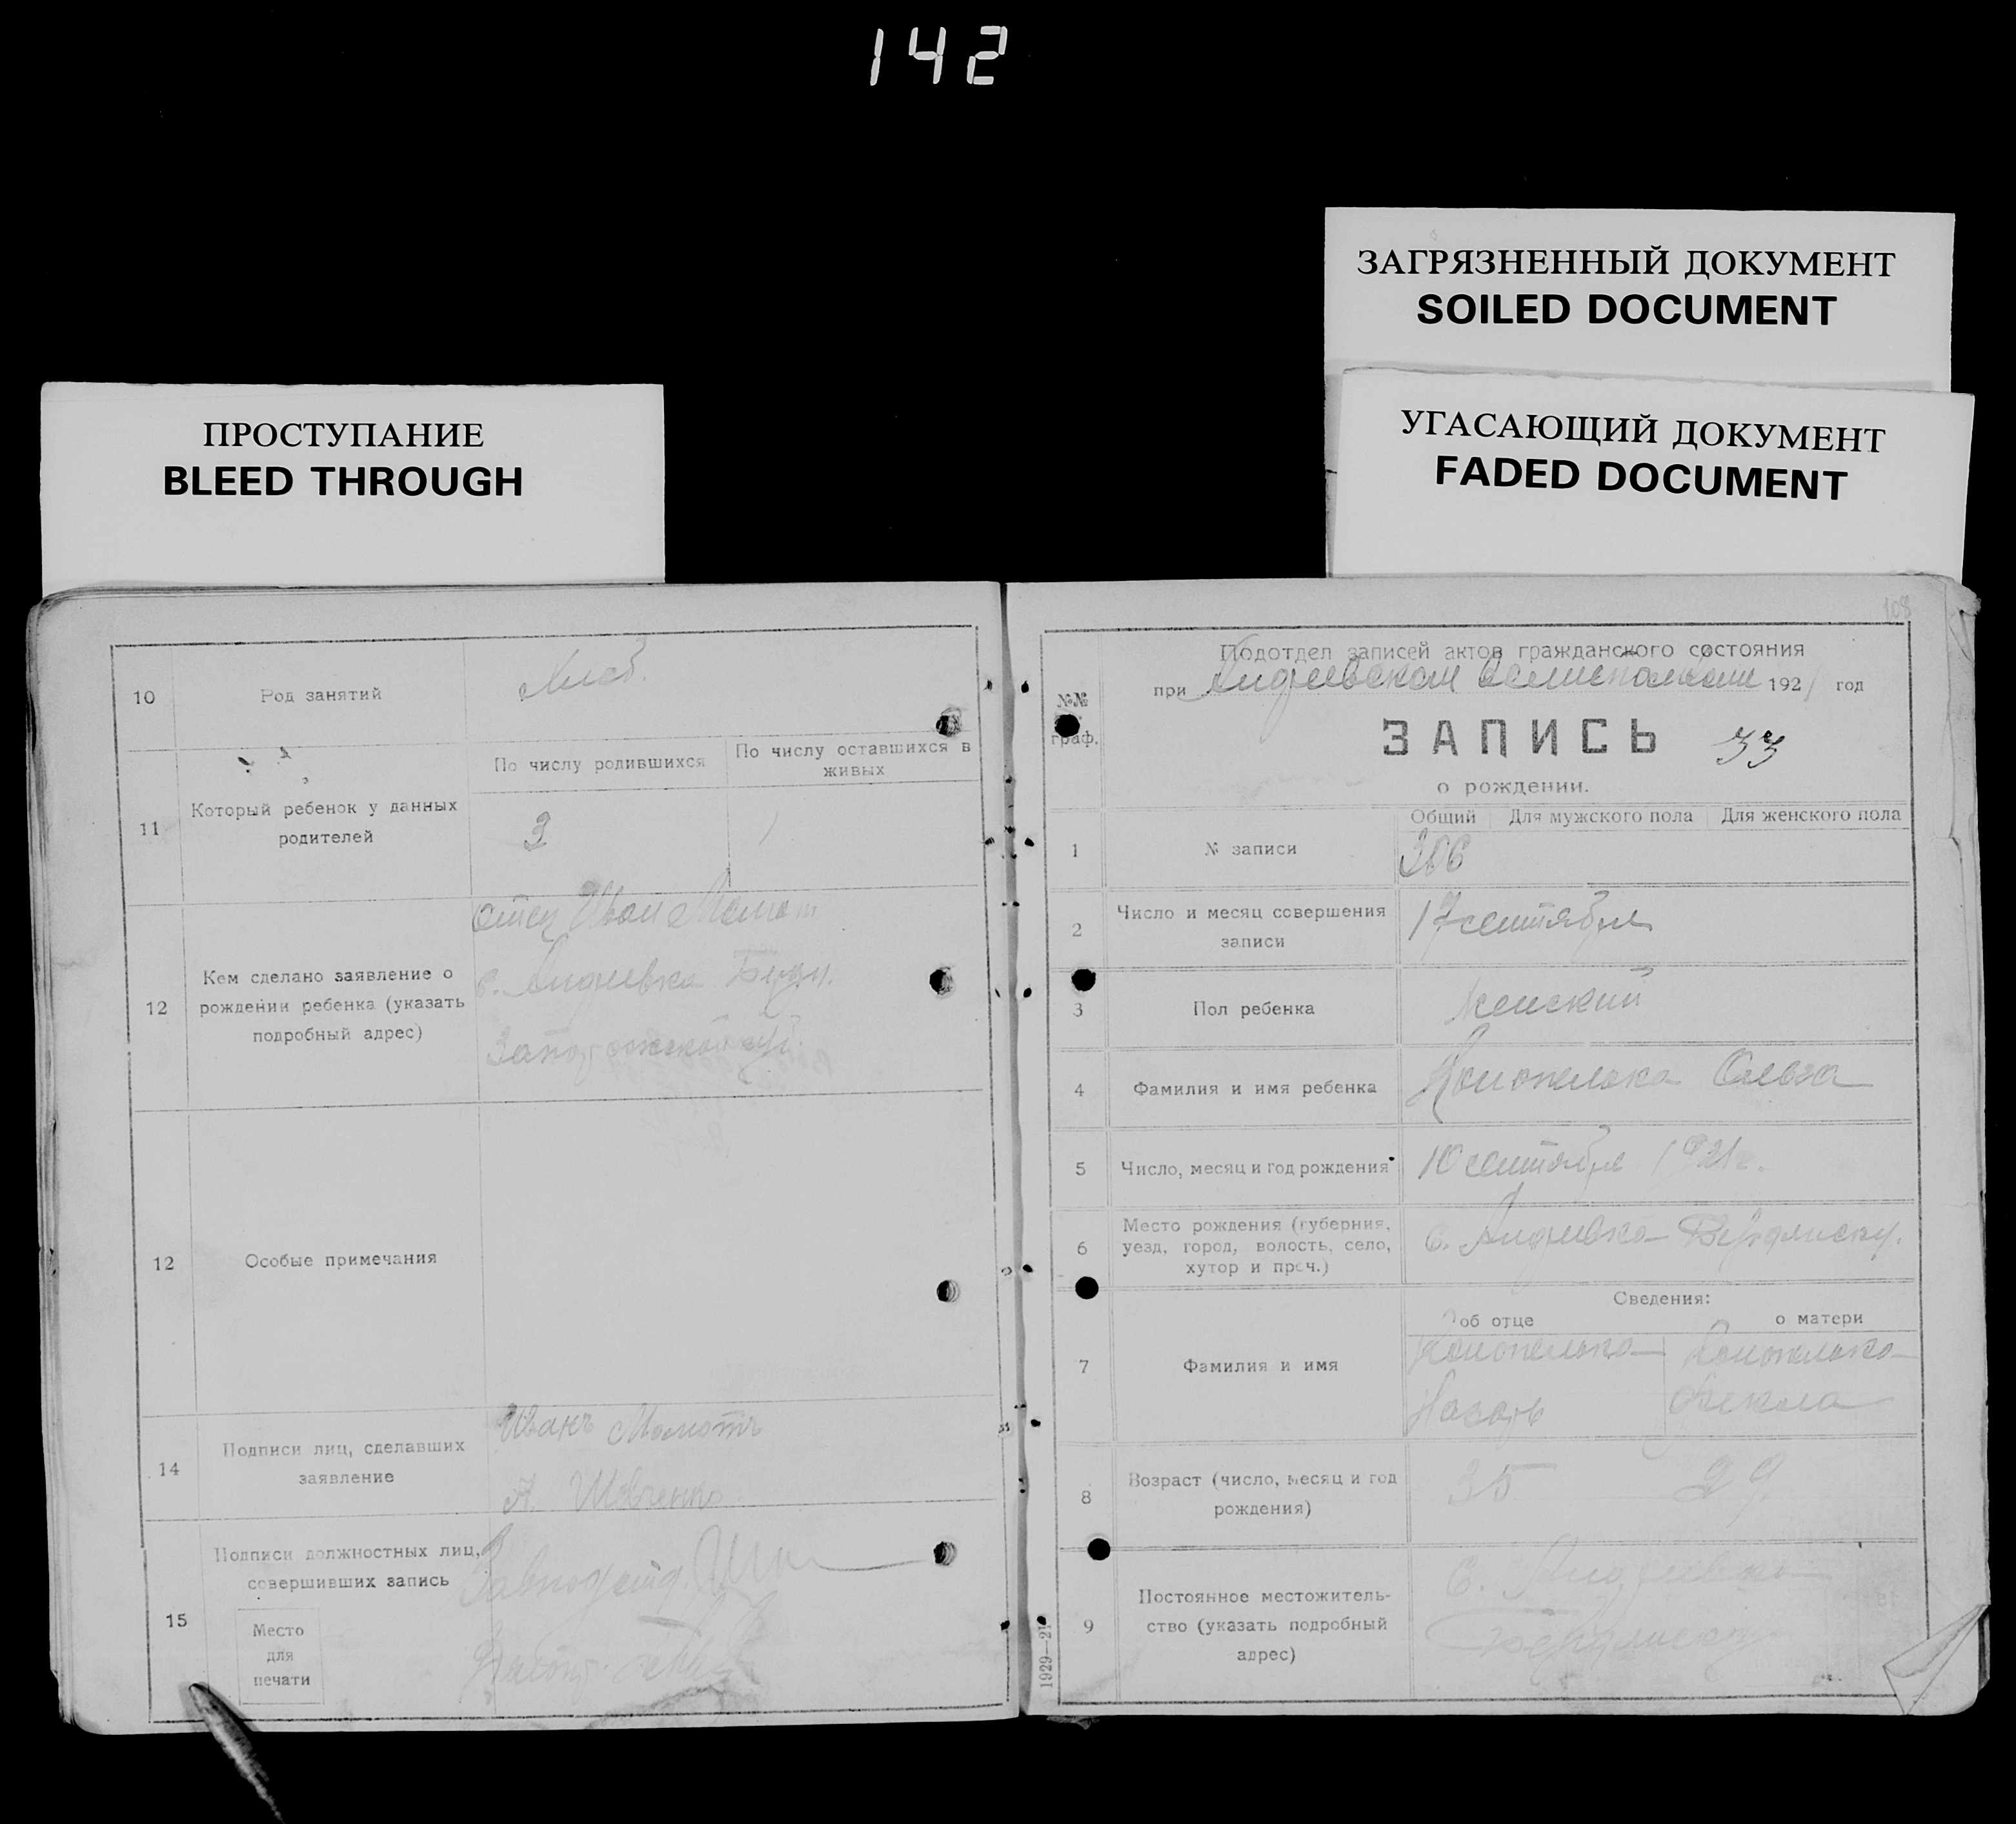 142
ЗАГРЯЗНЕННЫЙ ДОКУМЕНТ
SOILED DOCUMENT
УГАСАЮЩИЙ ДОКУМЕНТ
FADED DOCUMENT
ПРОСТУПАНИЕ
BLEED THROUGH
10 Род занятий
11 Который ребенок у данных
родителей
По числу родившихся
По числу оставшихся в
живых
3 1
12 Кем сделано заявление о
рождении ребенка (указать
подробный адрес)
отец Иван Момот
с. Андреевка
Запорожской
12 Особые примечания
14 Подписи лиц, сделавших
заявление
Иванъ Момотъ
А. Шовченко
15 Подписи должностных лиц,
совершивших запись
Место
для
печати
108
№№
граф.
Подотдел записей актов гражданского состояния
при Андреевском 1921 год
ЗАПИСЬ 33
о рождении.
Общий Для мужского пола Для женского пола
1 № записи 306
2 Число и месяц совершения
записи
17 сентября
3 Пол ребенка Женский
4 Фамилия и имя ребенка Конопелько Ольга
5 Число, месяц и год рождения 10 сентября 1921 г.
6 Место рождения (губерния,
уезд, город, волость, село,
хутор и проч.)
с. Андреевка Бердянску.
Сведения:
об отце о матери
7 Фамилия и имя
Конопелько Конопелько
Назарь Фекла
8 Возраст (число, месяц и год
рождения)
35 29
9 Постоянное местожитель-
ство (указать подробный
адрес)
с. Андреевка
1929—21